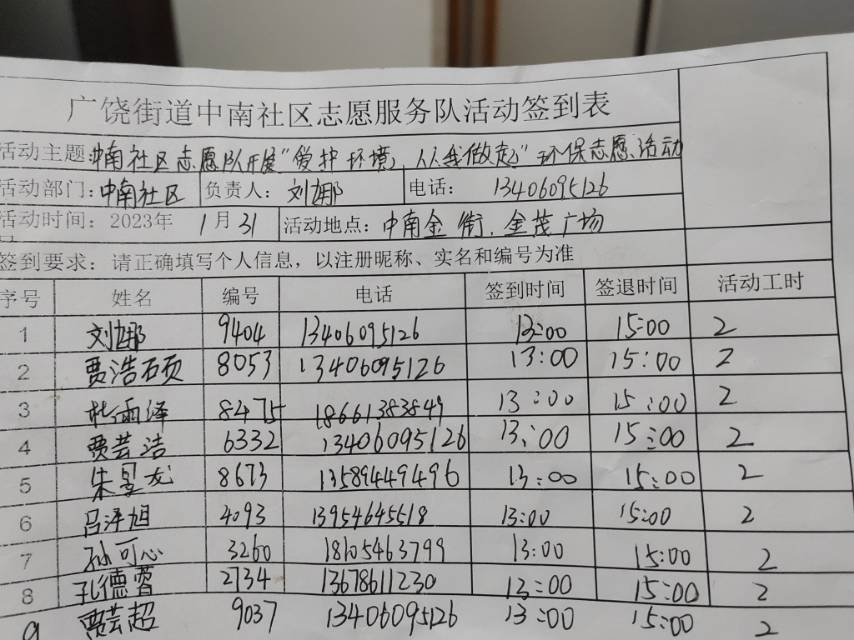 广饶街道中南社区志愿服务队活动签到表
活动主题:中南社区志愿队开展"爱护环境,从我做起"环保志愿活动
活动部门:中南社区 负责人:刘娜 电话: 13406095126
活动时间:2023年 1月31 活动地点:中南金街.金茂广场
签到要求:请正确填写个人信息,以注册昵称、实名和编号为准
序号 姓名 编号 电话 签到时间 签退时间 活动工时
1 刘娜 9404 13406095126 13:00 15:00 2
2 贾浩硕 8053 13406095126 13:00 15:00 2
3 杜雨泽 8475 18661383849 13:00 15:00 2
4 贾芸洁 6332 13406095126 13:00 15:00 2
5 朱昱龙 8673 13589449496 13:00 15:00 2
6 吕泽旭 4093 13954645518 13:00 15:00 2
7 孙可心 3260 18105463799 13:00 15:00 2
8 孔德蓉 2734 13678611230 13:00 15:00 2
9 贾芸超 9037 13406095126 13:00 15:00 2